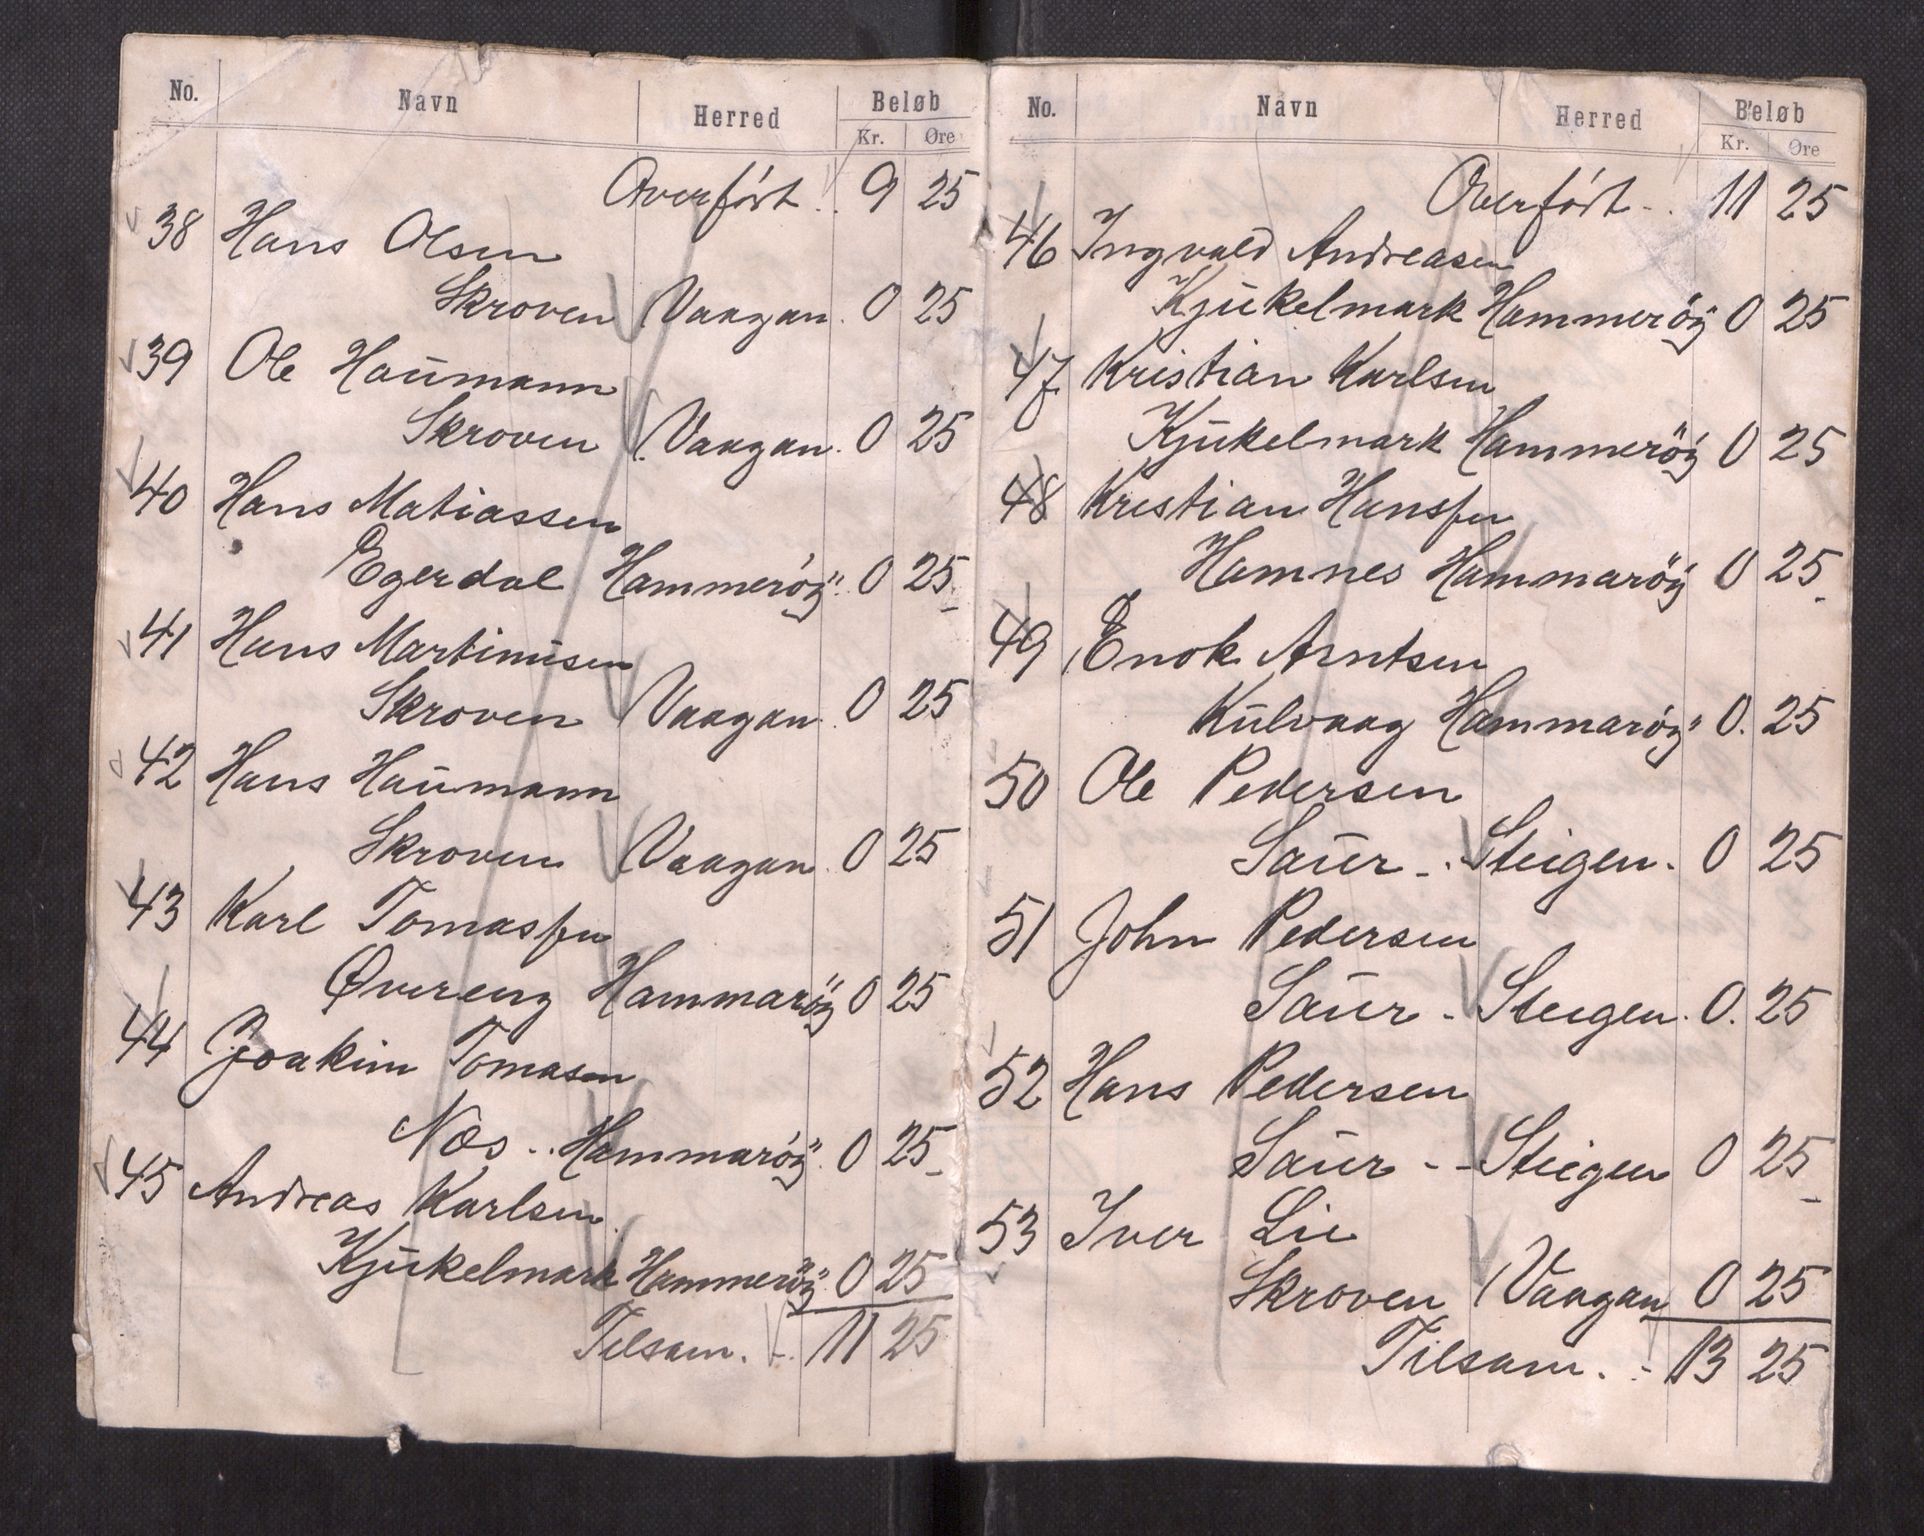 No. Navn Herred Beløb
Kr. Øre
Overført . . 9 25
38 Hans Olsen
Skroven Vaagan . 0 25
39 Ole Haumann
Skroven Vaagan . 0 25
40 Hans Matiassen
Egerdal Hammeröÿ . 0 25
41 Hans Martinusen
Skroven Vaagan . 0 25
42 Hans Haumann
Skroven Vaagan . 0 25
43 Karl Tomassen
Øvereng Hammaröÿ 0 25
44 Joakim Tomasen
Næs - . Hammaröÿ . 0 25
45 Andreas Karlsen
Kjukelmark Hammeröÿ 0 25
Tilsam . - . 11 25
No. Navn Herred Beløb
Kr. Øre
Overført - . 11 25
46 Ingvald Andreasen
Kjukelmark Hammeröÿ 0 25
47 Kristian Karlsen
Kjukelmark Hammeröÿ 0 25
48 Kristian Hanssen
Hamnes Hammaröÿ 0 25
49 Enok Arntsen
Kulvaag Hammaröÿ 0. 25
50 Ole Pedersen
Saur - . Steigen . 0 25
51 John Pedersen
Saur - Steigen . 0. 25
52 Hans Pedersen
Saur - - Steigen 0 25
53 Iver Lie
Skroven Vaagan 0 25
Tilsam . - 13 25